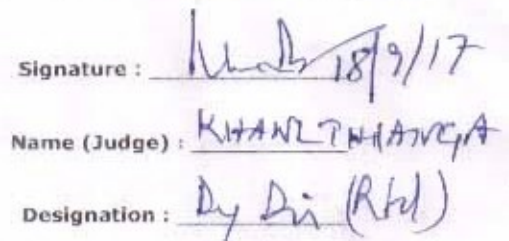 Signature : 18/9/17
Name (Judge) : KHAWLTHIANGA
Designation : Dy Dir (Rtd)